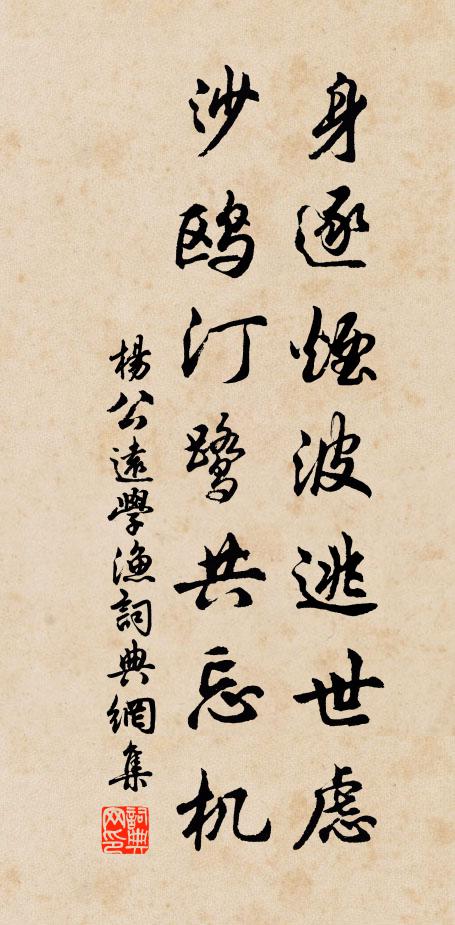 身逐煙波逃世慮
沙鸥汀鹭共忘机
楊公遠學漁詞典網集
詞典網印